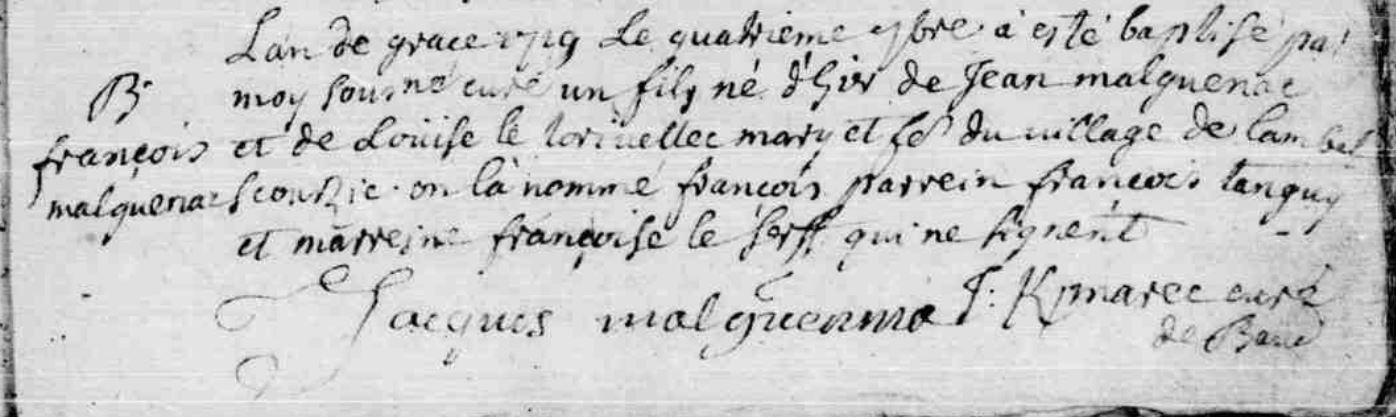 L'an de grace 1719 Le quatrieme 9bre à esté baptisé par
moy sousné curé un fils né d'hier de Jean malguenac
et de Louise le lorivellec mary et fe du village de lambel
scouhic. on là nommé françois parrein françois tanguy
et marreine françoise le serff qui ne signent
B.
françois
malguenac
Jacques malguenna J: Kmarec curé
de Baud